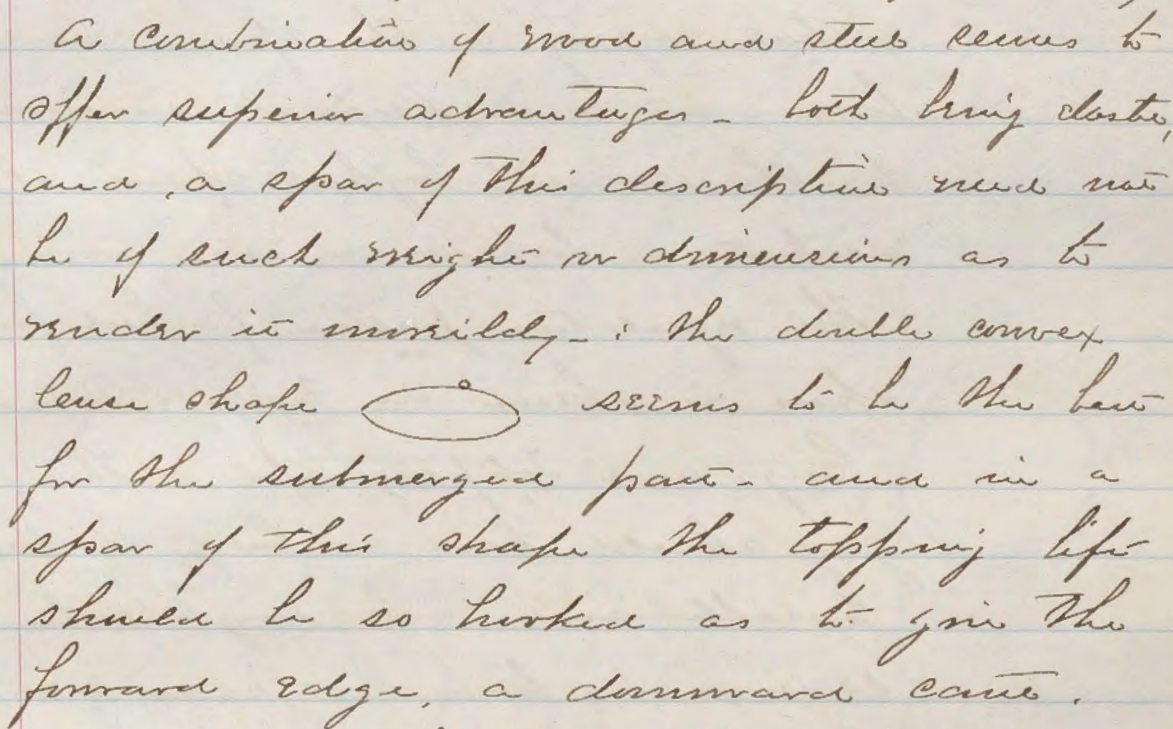 A combination of wood and steel seems to
offer superior advantages - both being elastic,
and, a spar of this description need not
be of such weight or dimensions as to
render it unwieldy - : the double convex
lense shape seems to be the best
for the submerged part - and in a
spar of this shape the topping lift
should be so hooked as to give the
forward edge, a downward cant.